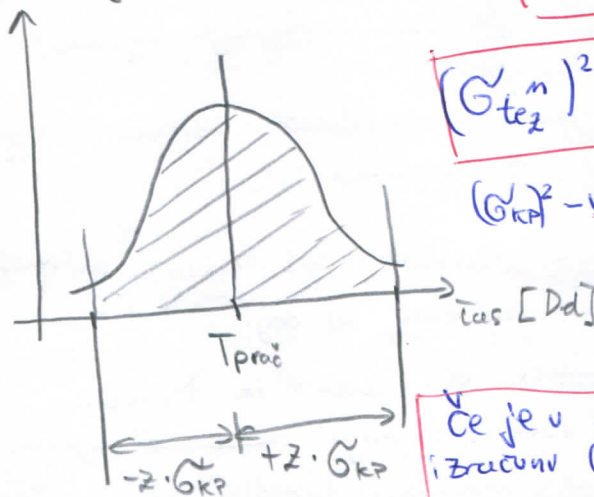 (σ_te_z^n)²
(σ_KP)² -
čas [Dd]
T_prač
-z·σ_KP +z·σ_KP
Če je v
izračunu (